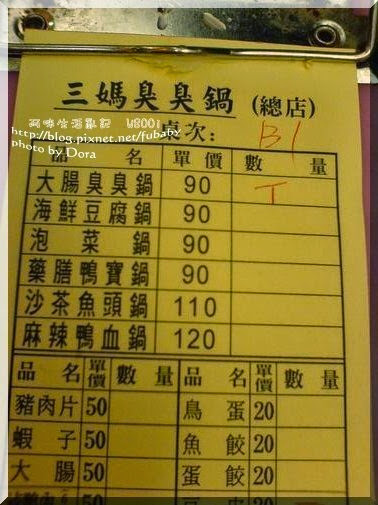 三媽臭臭鍋 (總店)
阿咪生活點記 W8001
http://blog.pixnet.net/fubaby
photo by Dora
桌次: B1
品名 單價 數量
大腸臭臭鍋 90 T
海鮮豆腐鍋 90
泡菜鍋 90
藥膳鴨寶鍋 90
沙茶魚頭鍋 110
麻辣鴨血鍋 120
品名 單價 數量 品名 單價 數量
豬肉片 50 鳥蛋 20
蝦子 50 魚餃 20
大腸 50 蛋餃 20